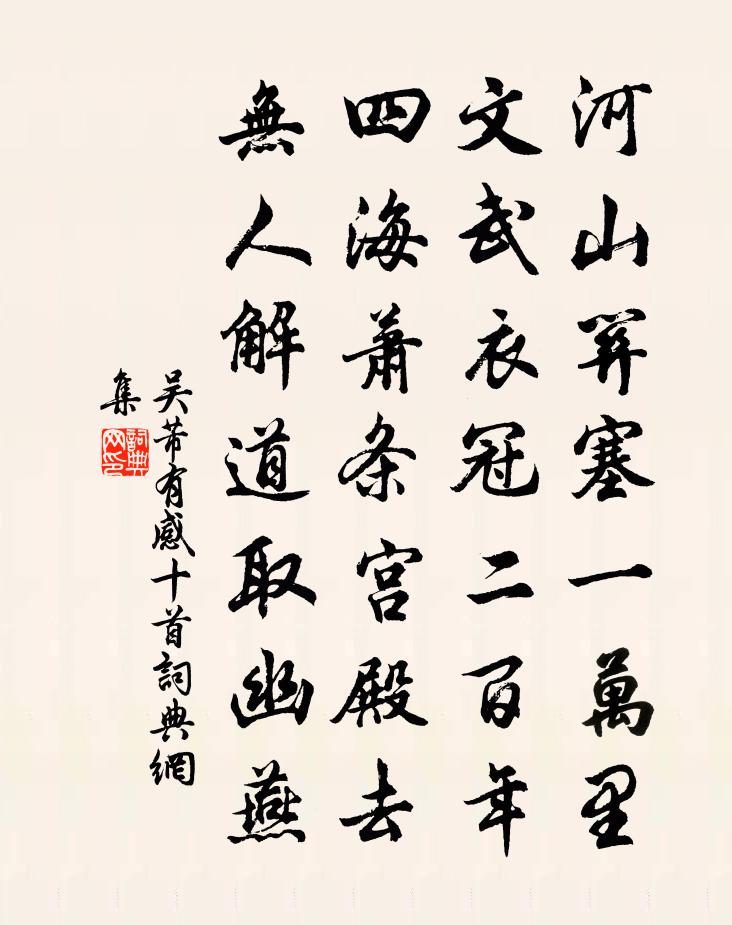 河山關塞一萬里
文武衣冠二百年
四海蕭条宫殿去
無人解道取幽燕
吴芾有感十首詞典網
集
詞典网印